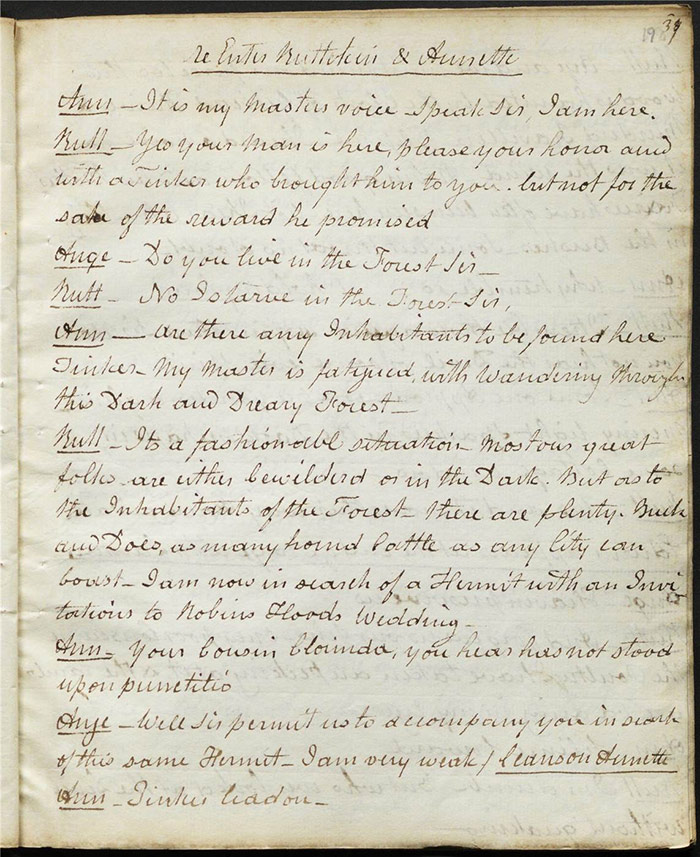 39
190
re Enter Ruttekin & Annette
Ann - It is my Masters voice - Speak Sir, I am here.
Rutt - Yes your Man is here, please your honor and
with a Tinker who brought him to you. but not for the
sake of the reward he promised
Ange - Do you live in the Forest Sir -
Rutt - No I starve in the Forest Sir,
Ann - are there any Inhabitants to be found here
Tinker - My Master is fatigued, with wandering through
this Dark and Dreary Forest -
Rutt - Its a fashionabl situation - Most our great
folks are either bewilderd or in the Dark. But as to
the Inhabitants of the Forest - there are plenty. Buck
and Does, as many hornd Cattle as any City can
boast - I am now in search of a Hermit with an Invi
tations to Robins Hoods Wedding -
Ann - Your Cousin Clorinda, you hear has not stood
upon punctitio
Ange - Well Sir permit us to accompany you in search
of this same Hermit - I am very weak / Leans on Annette
Ann - Tinker lead on -